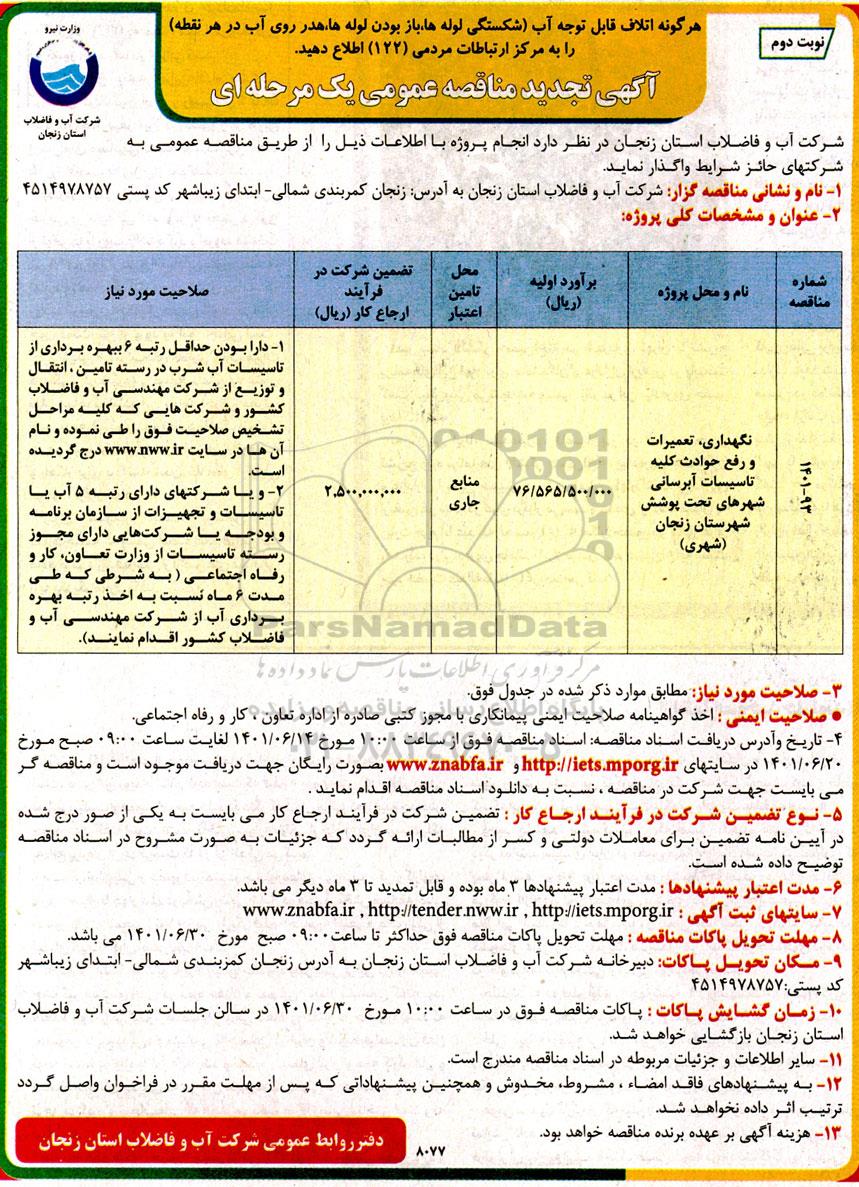 هرگونه اتلاف قابل توجه آب (شکستگی لوله ها،باز بودن لوله ها،هدر روی آب در هر نقطه)
را به مرکز ارتباطات مردمی (۱۲۲) اطلاع دهید.
نوبت دوم
وزارت نیرو
شرکت آب و فاضلاب
استان زنجان
آگهی تجدید مناقصه عمومی یک مرحله ای
شرکت آب و فاضلاب استان زنجان در نظر دارد انجام پروژه با اطلاعات ذیل را از طریق مناقصه عمومی به
شرکتهای حائز شرایط واگذار نماید.
۱- نام و نشانی مناقصه گزار: شرکت آب و فاضلاب استان زنجان به آدرس: زنجان کمربندی شمالی- ابتدای زیباشهر کد پستی ۴۵۱۴۹۷۸۷۵۷
۲- عنوان و مشخصات کلی پروژه:
شماره
مناقصه
نام و محل پروژه
برآورد اولیه
(ریال)
محل
تامین
اعتبار
تضمین شرکت در
فرآیند
ارجاع کار (ریال)
صلاحیت مورد نیاز
۱۴۰۱-۹۳
نگهداری، تعمیرات
و رفع حوادث کلیه
تاسیسات آبرسانی
شهرهای تحت پوشش
شهرستان زنجان
(شهری)
۷۶/۵۶۵/۵۰۰/۰۰۰
منابع
جاری
۲,۵۰۰,۰۰۰,۰۰۰
۱- دارا بودن حداقل رتبه ۶ ببهره برداری از
تاسیسات آب شرب در رسته تامین ، انتقال
و توزیع از شرکت مهندسی آب و فاضلاب
کشور و شرکت هایی که کلیه مراحل
تشخیص صلاحیت فوق را طی نموده و نام
آن ها در سایت www.nww.ir درج گردیده
است.
۲- و یا شرکتهای دارای رتبه ۵ آب یا
تاسیسات و تجهیزات از سازمان برنامه
و بودجه یا شرکت‌هایی دارای مجوز
رسته تاسیسات از وزارت تعاون، کار و
رفاه اجتماعی ( به شرطی که طی
مدت ۶ ماه نسبت به اخذ رتبه بهره
برداری آب از شرکت مهندسی آب و
فاضلاب کشور اقدام نمایند).
ParsNamadData
مرکز فرآوری اطلاعات پارس نماد داده ها
پایگاه اطلاع رسانی مناقصه و مزایده
۰۲۱-۸۸۳۴۹۶۷۰-۵
۳- صلاحیت مورد نیاز: مطابق موارد ذکر شده در جدول فوق.
● صلاحیت ایمنی : اخذ گواهینامه صلاحیت ایمنی پیمانکاری با مجوز کتبی صادره از اداره تعاون ، کار و رفاه اجتماعی.
۴- تاریخ وآدرس دریافت اسناد مناقصه: اسناد مناقصه فوق از ساعت ۱۰:۰۰ مورخ ۱۴۰۱/۰۶/۱۴ لغایت ساعت ۰۹:۰۰ صبح مورخ
۱۴۰۱/۰۶/۲۰ در سایتهای http://iets.mporg.ir و www.znabfa.ir بصورت رایگان جهت دریافت موجود است و مناقصه گر
می بایست جهت شرکت در مناقصه ، نسبت به دانلود اسناد مناقصه اقدام نماید .
۵- نوع تضمین شرکت در فرآیند ارجاع کار : تضمین شرکت در فرآیند ارجاع کار می بایست به یکی از صور درج شده
در آیین نامه تضمین برای معاملات دولتی و کسر از مطالبات ارائه گردد که جزئیات به صورت مشروح در اسناد مناقصه
توضیح داده شده است.
۶- مدت اعتبار پیشنهادها : مدت اعتبار پیشنهادها ۳ ماه بوده و قابل تمدید تا ۳ ماه دیگر می باشد.
۷- سایتهای ثبت آگهی : www.znabfa.ir , http://tender.nww.ir , http://iets.mporg.ir
۸- مهلت تحویل پاکات مناقصه : مهلت تحویل پاکات مناقصه فوق حداکثر تا ساعت۰۹:۰۰ صبح مورخ ۱۴۰۱/۰۶/۳۰ می باشد.
۹- مکان تحویل پاکات: دبیرخانه شرکت آب و فاضلاب استان زنجان به آدرس زنجان کمربندی شمالی- ابتدای زیباشهر
کد پستی:۴۵۱۴۹۷۸۷۵۷
۱۰- زمان گشایش پاکات : پاکات مناقصه فوق در ساعت ۱۰:۰۰ مورخ ۱۴۰۱/۰۶/۳۰ در سالن جلسات شرکت آب و فاضلاب
استان زنجان بازگشایی خواهد شد.
۱۱- سایر اطلاعات و جزئیات مربوطه در اسناد مناقصه مندرج است.
۱۲- به پیشنهادهای فاقد امضاء ، مشروط، مخدوش و همچنین پیشنهاداتی که پس از مهلت مقرر در فراخوان واصل گردد
ترتیب اثر داده نخواهد شد.
۱۳- هزینه آگهی بر عهده برنده مناقصه خواهد بود.
۸۰۷۷
دفتر روابط عمومی شرکت آب و فاضلاب استان زنجان